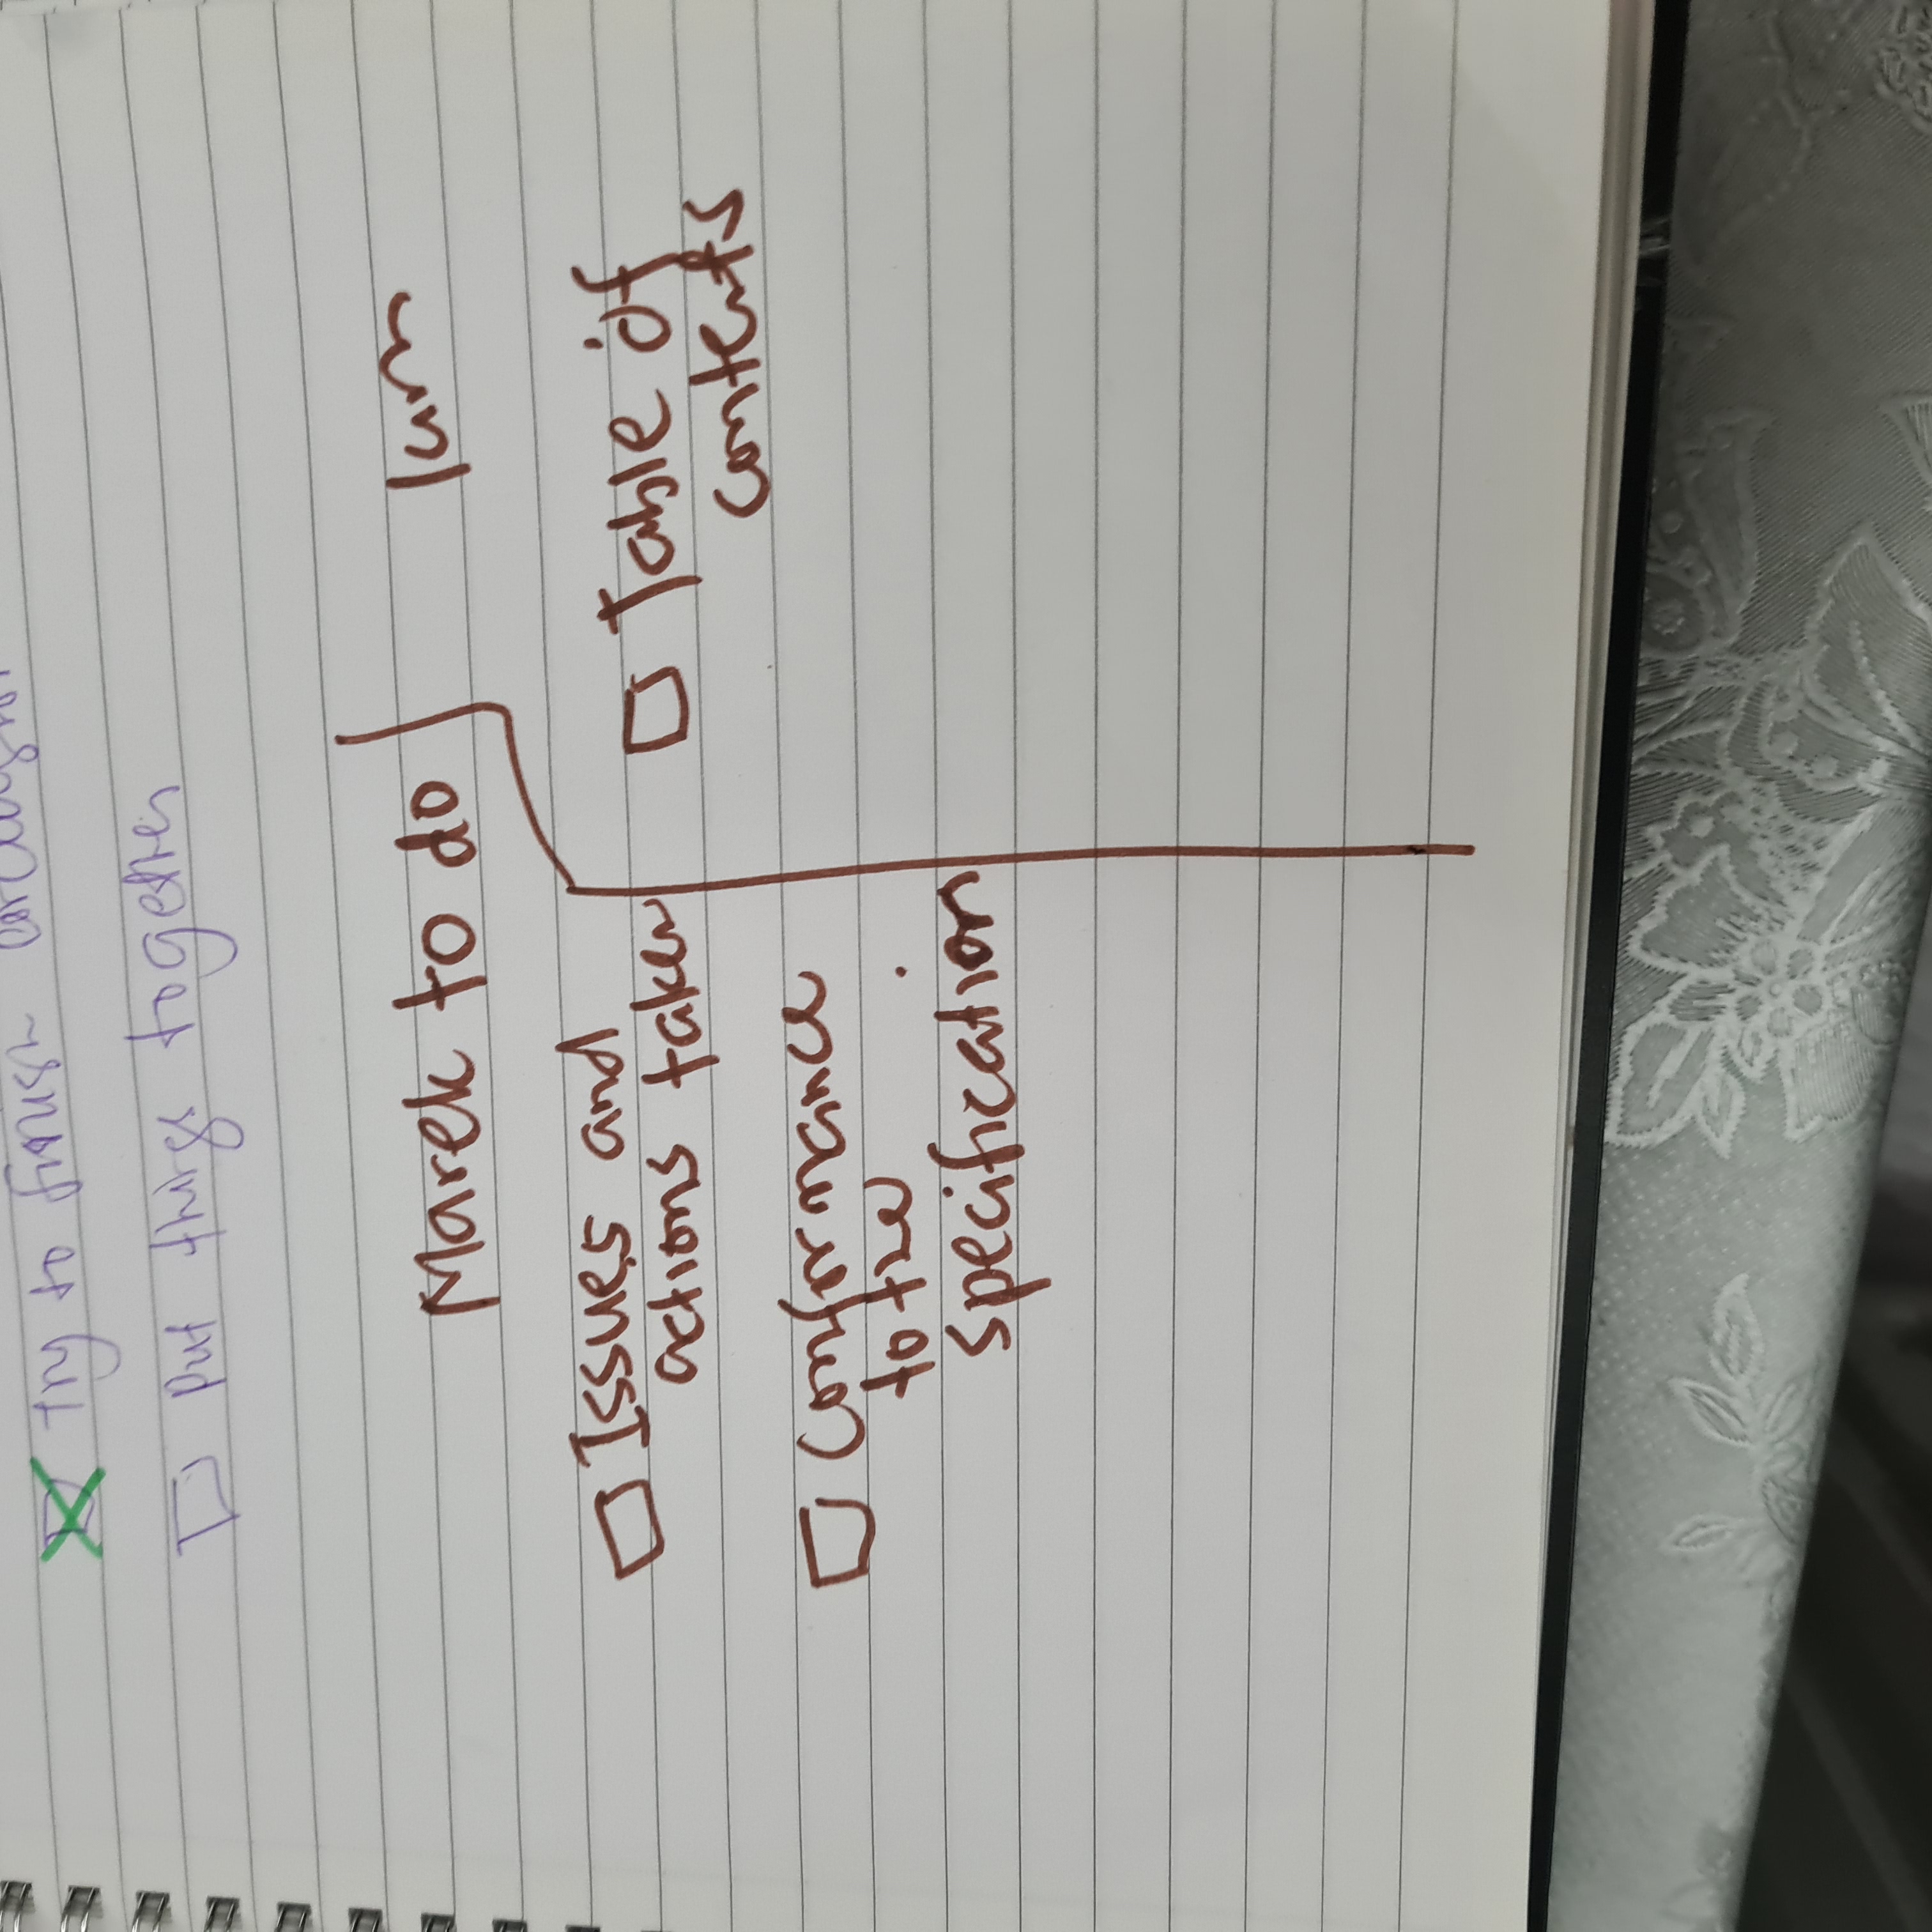 Try to finish
put things together
Marek to do
Issues and
actions taken
Conformance
to the
specification
Iun
Table of
contents